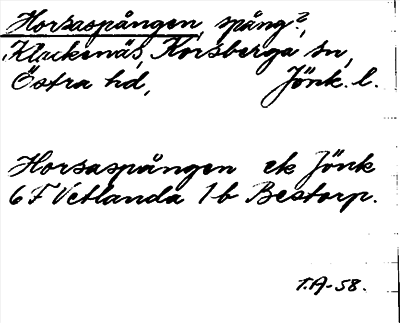 Horsaspången, spång?,
Klackenäs, Korsberga sn,
Östra hd, Jönk. l.
Horsaspången ek Jönk
6 F Vetlanda 1 b Bestorp.
T.A-58.